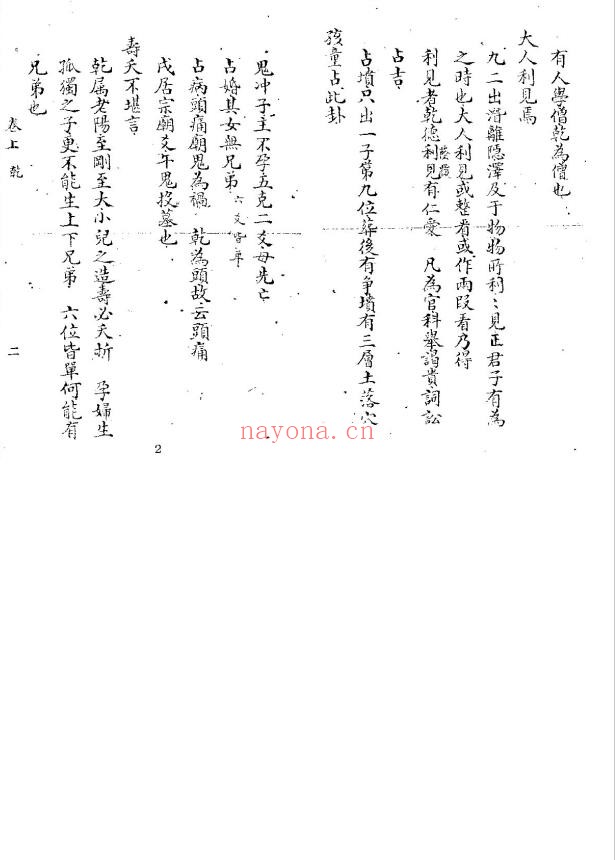 有人學僧乾為僧也
大人利見焉
九二出潛離隱澤及于物物所利〻見正君子有為
之時也大人利見或整看或作兩段看乃得
利見者乾德利見有仁愛 凡為官科舉謁貴詞訟
占吉
占墳只出一子第九位葬後有爭墳有三層土落穴
孩童占此卦
鬼冲子主不孕五克二爻母先亡
占婚其女無兄弟 六爻皆單
占病頭痛廟鬼為禍 乾為頭故云頭痛
戌居宗廟爻午鬼投墓也
壽夭不堪言
乾屬老陽至剛至大小兒之造壽必夭折 孕婦生
孤獨之子更不能生上下兄弟 六位皆單何能有
兄弟也
卷上 乾 二
2
nayona.cn